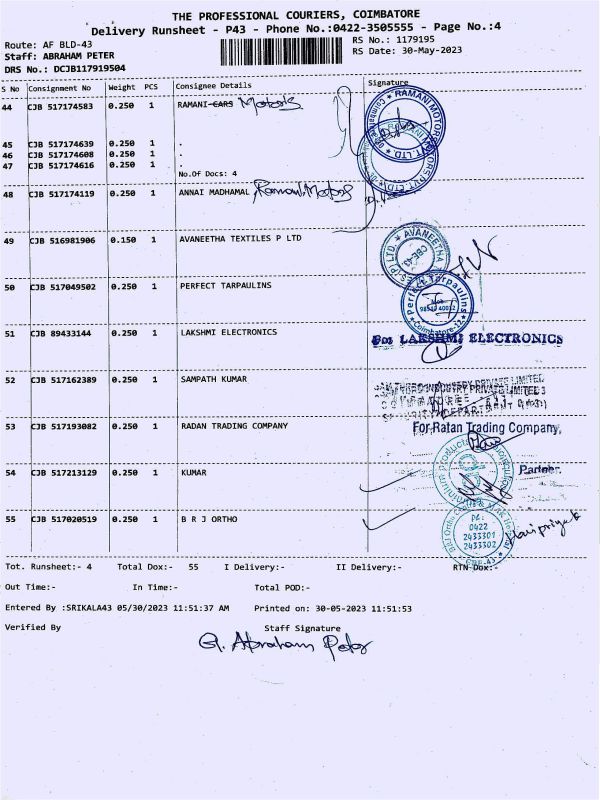 THE PROFESSIONAL COURIERS, COIMBATORE
Delivery Runsheet - P43 - Phone No.:0422-3505555 - Page No.:4
Route: AF BLD-43
RS No.: 1179195
Staff: ABRAHAM PETER
RS Date: 30-May-2023
DRS No.: DCJB117919504
S No Consignment No Weight PCS Consignee Details Signature
44 CJB 517174583 0.250 1 RAMANI CARS Motors
RAMANI MOTORS
45 CJB 517174639 0.250 1 .
46 CJB 517174608 0.250 1 .
47 CJB 517174616 0.250 1 .
No.Of Docs: 4
48 CJB 517174119 0.250 1 ANNAI MADHAMAL, Ramani Motors
49 CJB 516981906 0.150 1 AVANEETHA TEXTILES P LTD
AVANEETHA
CBE-43
50 CJB 517049502 0.250 1 PERFECT TARPAULINS
Perfect Tarpaulins
Coimbatore-12
51 CJB 89433144 0.250 1 LAKSHMI ELECTRONICS
For LAKSHMI ELECTRONICS
52 CJB 517162389 0.250 1 SAMPATH KUMAR
53 CJB 517193082 0.250 1 RADAN TRADING COMPANY
For Ratan Trading Company,
Partner.
54 CJB 517213129 0.250 1 KUMAR
55 CJB 517020519 0.250 1 B R J ORTHO
PH:
0422
2433301
2433302
CBE-43
Haripriya
Tot. Runsheet:- 4 Total Dox:- 55 I Delivery:- II Delivery:- RTN Dox:-
Out Time:- In Time:- Total POD:-
Entered By :SRIKALA43 05/30/2023 11:51:37 AM Printed on: 30-05-2023 11:51:53
Verified By Staff Signature
G. Abraham Peter